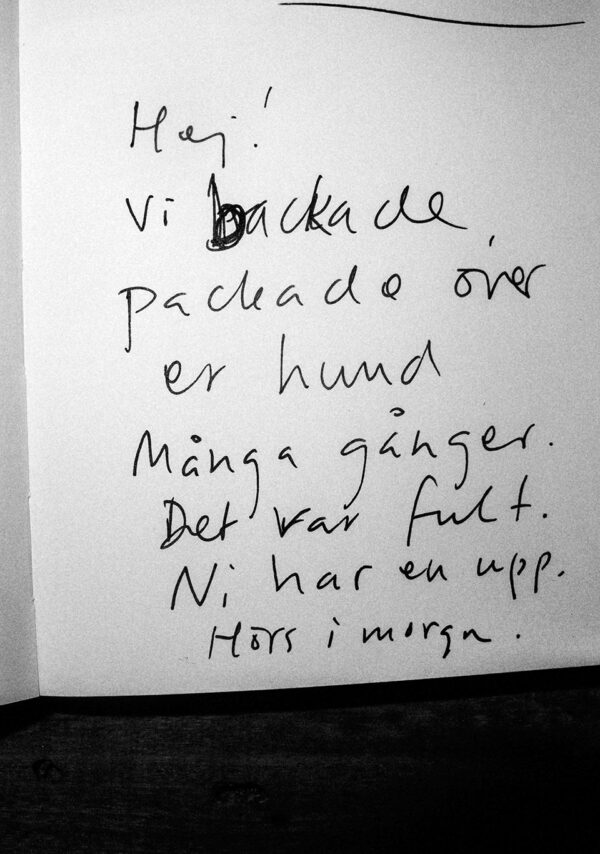 Hej!
Vi backade
packade över
er hund
Många gånger.
Det var fult.
Ni har en upp.
Hörs i morgn.